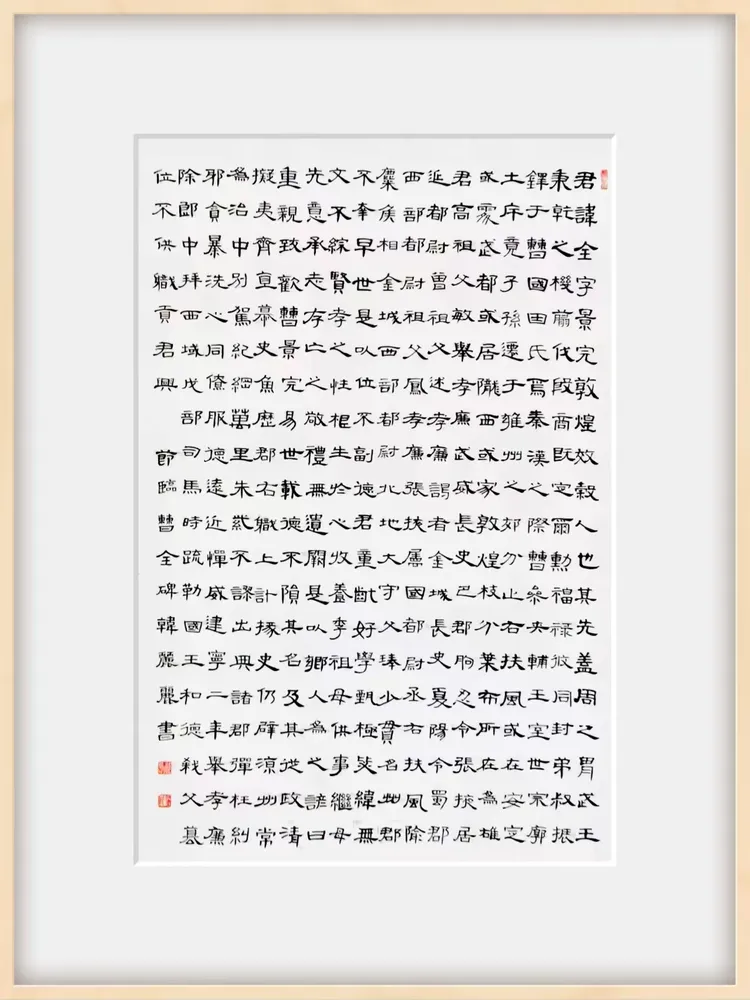 君諱全字景完敦煌效穀人也其先蓋周之冑武王
秉乾之機翦伐殷商既定爾勳福祿攸同封弟叔振
鐸于曹國因氏焉秦漢之際曹參夾輔王室世宗廓
土斥竟子孫遷于雍州之郊分止右扶風或在安定
或處武都或居隴西或家敦煌枝分葉布所在為雄
君高祖父敏舉孝廉武威長史巴郡朐忍令張掖居
延都尉曾祖父述孝廉謁者金城長史夏陽令蜀郡
西部都尉祖父鳳孝廉張掖屬國都尉丞右扶風隃
麋侯相金城西部都尉北地大守父琫少貫名州郡
不幸早世是以位不副德君童齔好學甄極毖緯無
文不綜賢孝之性根生於心收養季祖母供事繼母
先意承志存亡之敬禮無遺闕是以鄉人為之諺曰
重親致歡曹景完易世載德不隕其名及其從政清
擬夷齊直慕史魚歷郡右職上計掾史仍辟涼州常
為治中別駕紀綱萬里朱紫不謬出典諸郡彈枉糾
邪貪暴洗心同僚服德遠近憚威建寧二年舉孝廉
除郎中拜西域戊部司馬時疏勒國王和德弒父篡
位不供職貢君興 節臨曹全碑韓麗麗書